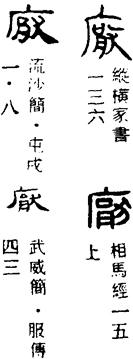 厥
縱橫家書
一三六
厥
相馬經一五
上
厥
流沙簡·屯戍
一·八
厥
武威簡·服傳
四三